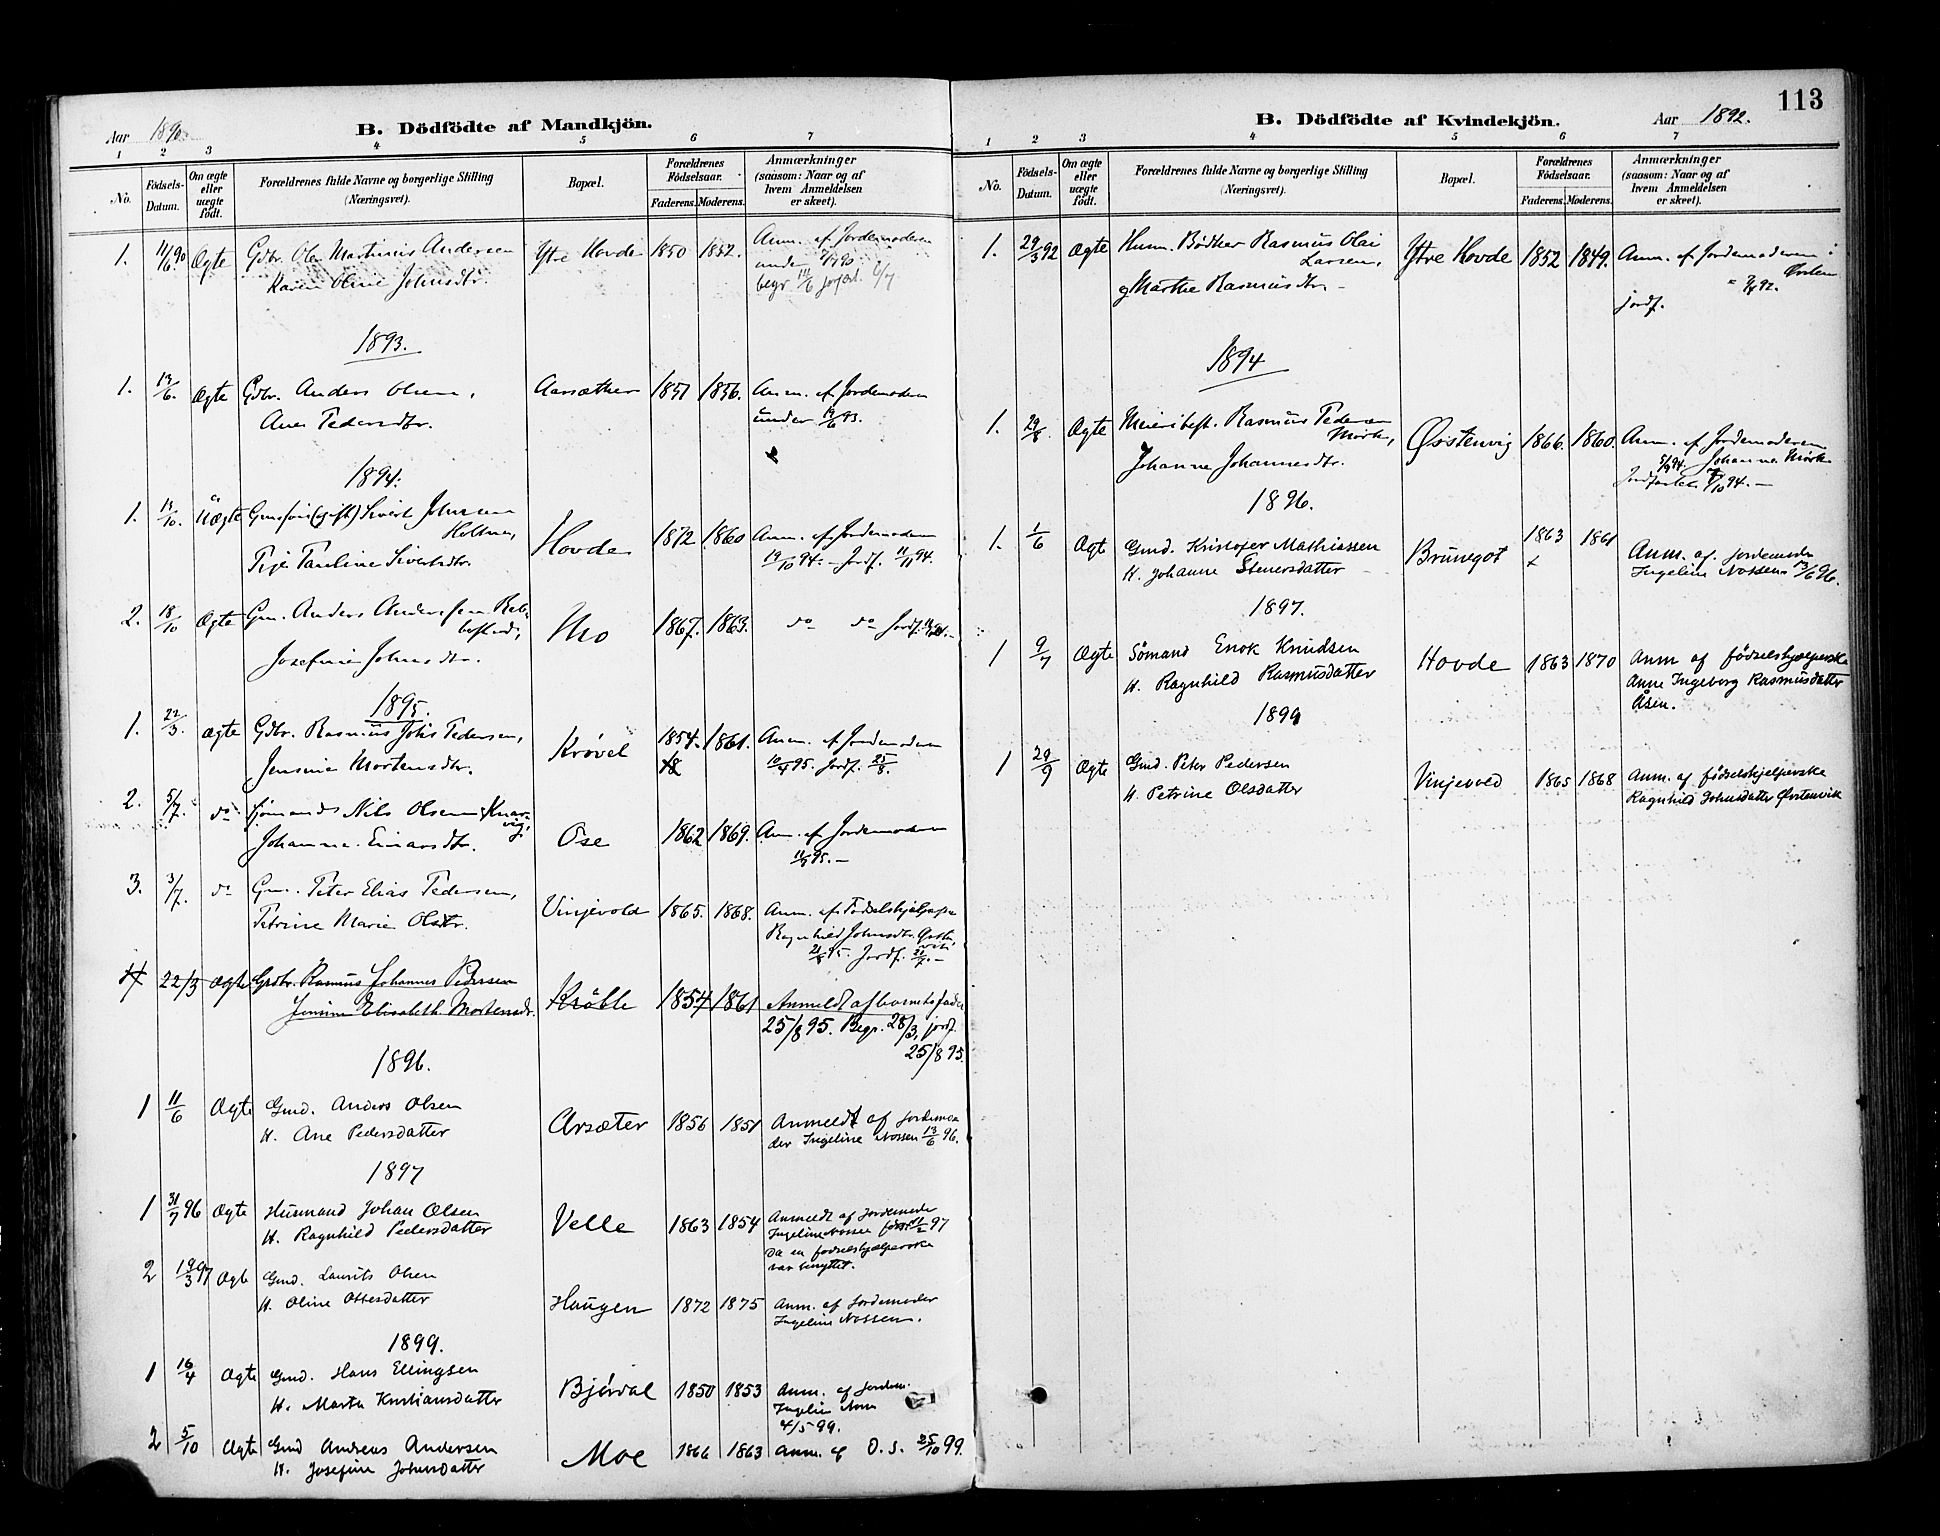 Aar 1890
B. Dödfödte af Mandkjön.
1 2 3 4 5 6 7
No.
Födsels-Datum.
Om ægte eller uægte födt.
Forældrenes fulde Navne og borgerlige Stilling (Næringsvei).
Bopæl.
Forældrenes Födselsaar.
Faderens. Moderens.
Anmærkninger (saasom: Naar og af hvem Anmeldelsen er skeet).
1. 11/6 90 Ægte Gdbr. Ole Martinus Andersen Ytre Hovde 1850 1852. Anm. af Jordemoderen
Karen Oline Johnsdtr.
begr 14/6 jordf. 6/7
1893.
1. 13/6. Ægte Gdbr. Anders Olsen, Aarsæther 1851 1856. Anm. af Jordemoderen
Ane Pedersdtr. under 19/6 93.
1894.
1. 14/10. Uægte Sivert Johnsen
Holtmen,
Hovde 1872 1860 Anm. af Jordemoderen
Pauline Sivertsdtr. 19/10 94. – Jordf. 11/11 94.
2. 18/10 Ægte Gm. Anders Andersen
Mo 1867. 1863. do do Jordf.
Josefine Johnsdtr.
1895.
1. 22/3. Ægte Gdbr. Rasmus Johs Pedersen, Krövel 1854. 1861. Anm. af Jordemoderen
Jensine Mortensdtr. 10/4 95. Jordf. 25/8.
2. 5/7. do Sjömand Nils Olsen
Johanna Einarsdtr. Ose 1862 1869. Anm. af Jordemoderen
11/7 95. –
3. 3/7. do Gm. Peter Elias Pedersen,
Petrine Marie Olsdtr. Vinjevold 1865. 1868. Anm. af Födselshjælperske
Ragnhild Johnsdtr.
Jordf.
4 22/3 Ægte Grdbr. Rasmus Johannes Pedersen
Jensine Elisabeth Mortensdt. Kröble 1854 1861 Anmeldt af barnets fader
25/8 95. Begr. 28/3, jordf.
25/8 95.
1896.
1 11/6 Ægte Gmd. Anders Olsen
H. Ane Pedersdatter Arsæter 1856 1851 Anmeldt af Jordemo
der Ingeline Nossen 13/6 96.
1897
1 31/7 96 Ægte Husmand Johan Olsen
H. Ragnhild Pedersdatter Velle 1863 1854 Anmeldt af Jordemoder
Ingeline Nossen först 11/2 97
Da en fødselshjælperske
var benyttet.
2 19/3 97 Ægte Gmd. Laurits Olsen
H. Oline Ottesdatter Haugen 1872 1875 Anm. af Jordemoder
Ingeline Nossen.
1899.
1 16/4 Ægte Gmd. Hans Ellingsen
H. Marta Kristiansdatter Bjørdal 1850 1853 Anm. af Jordem.
4/5 99.
2 5/10 Ægte Gmd Andreas Andersen
H. Josefine Johnsdatter Moe 1866 1863 Anm. af D. S. 25/10 99.
113
B. Dödfödte af Kvindekjön.
Aar 1892.
1 2 3 4 5 6 7
No.
Födsels-Datum.
Om ægte eller uægte födt.
Forældrenes fulde Navne og borgerlige Stilling (Næringsvei).
Bopæl.
Forældrenes Födselsaar.
Faderens. Moderens.
Anmærkninger (saasom: Naar og af hvem Anmeldelsen er skeet).
1. 29/3 92 Ægte Husm. Bödker Rasmus Olai
Larsen, Ytre Hovde 1852 1849. Anm. af Jordemoderen i
og Marthe Rasmusdtr. –
jordf.
1894
1. 29/8. Ægte Meieribest. Rasmus Pedersen
Mork, Østenvig 1866. 1860. Anm. af Jordemoderen
Johanne Johannesdtr. 5/9 94. Johanna Mörk
Jordfæstet 7/10 94. –
1896.
1. 1/6 Ægt Gmd. Kristofer Mathiassen Brunegot 1863 1861 Anm. af Jordemoder
H. Johanne Steversdatter + Ingeline Nossen 13/6 96.
1897.
1 9/7 Ægte Sömand Enok Knudsen Hovde 1863 1870 Anm af födselshjælperske
H. Ragnhild Rasmusdatter Anne Ingeborg Rasmusdatter
Åsen.
1899
1 29/9 Ægte Gmd. Peter Pedersen Vinjevold 1865 1868 Anm. af födselshjelperske
H. Petrine Olsdatter Ragnhild Johnsdatter Østenvik